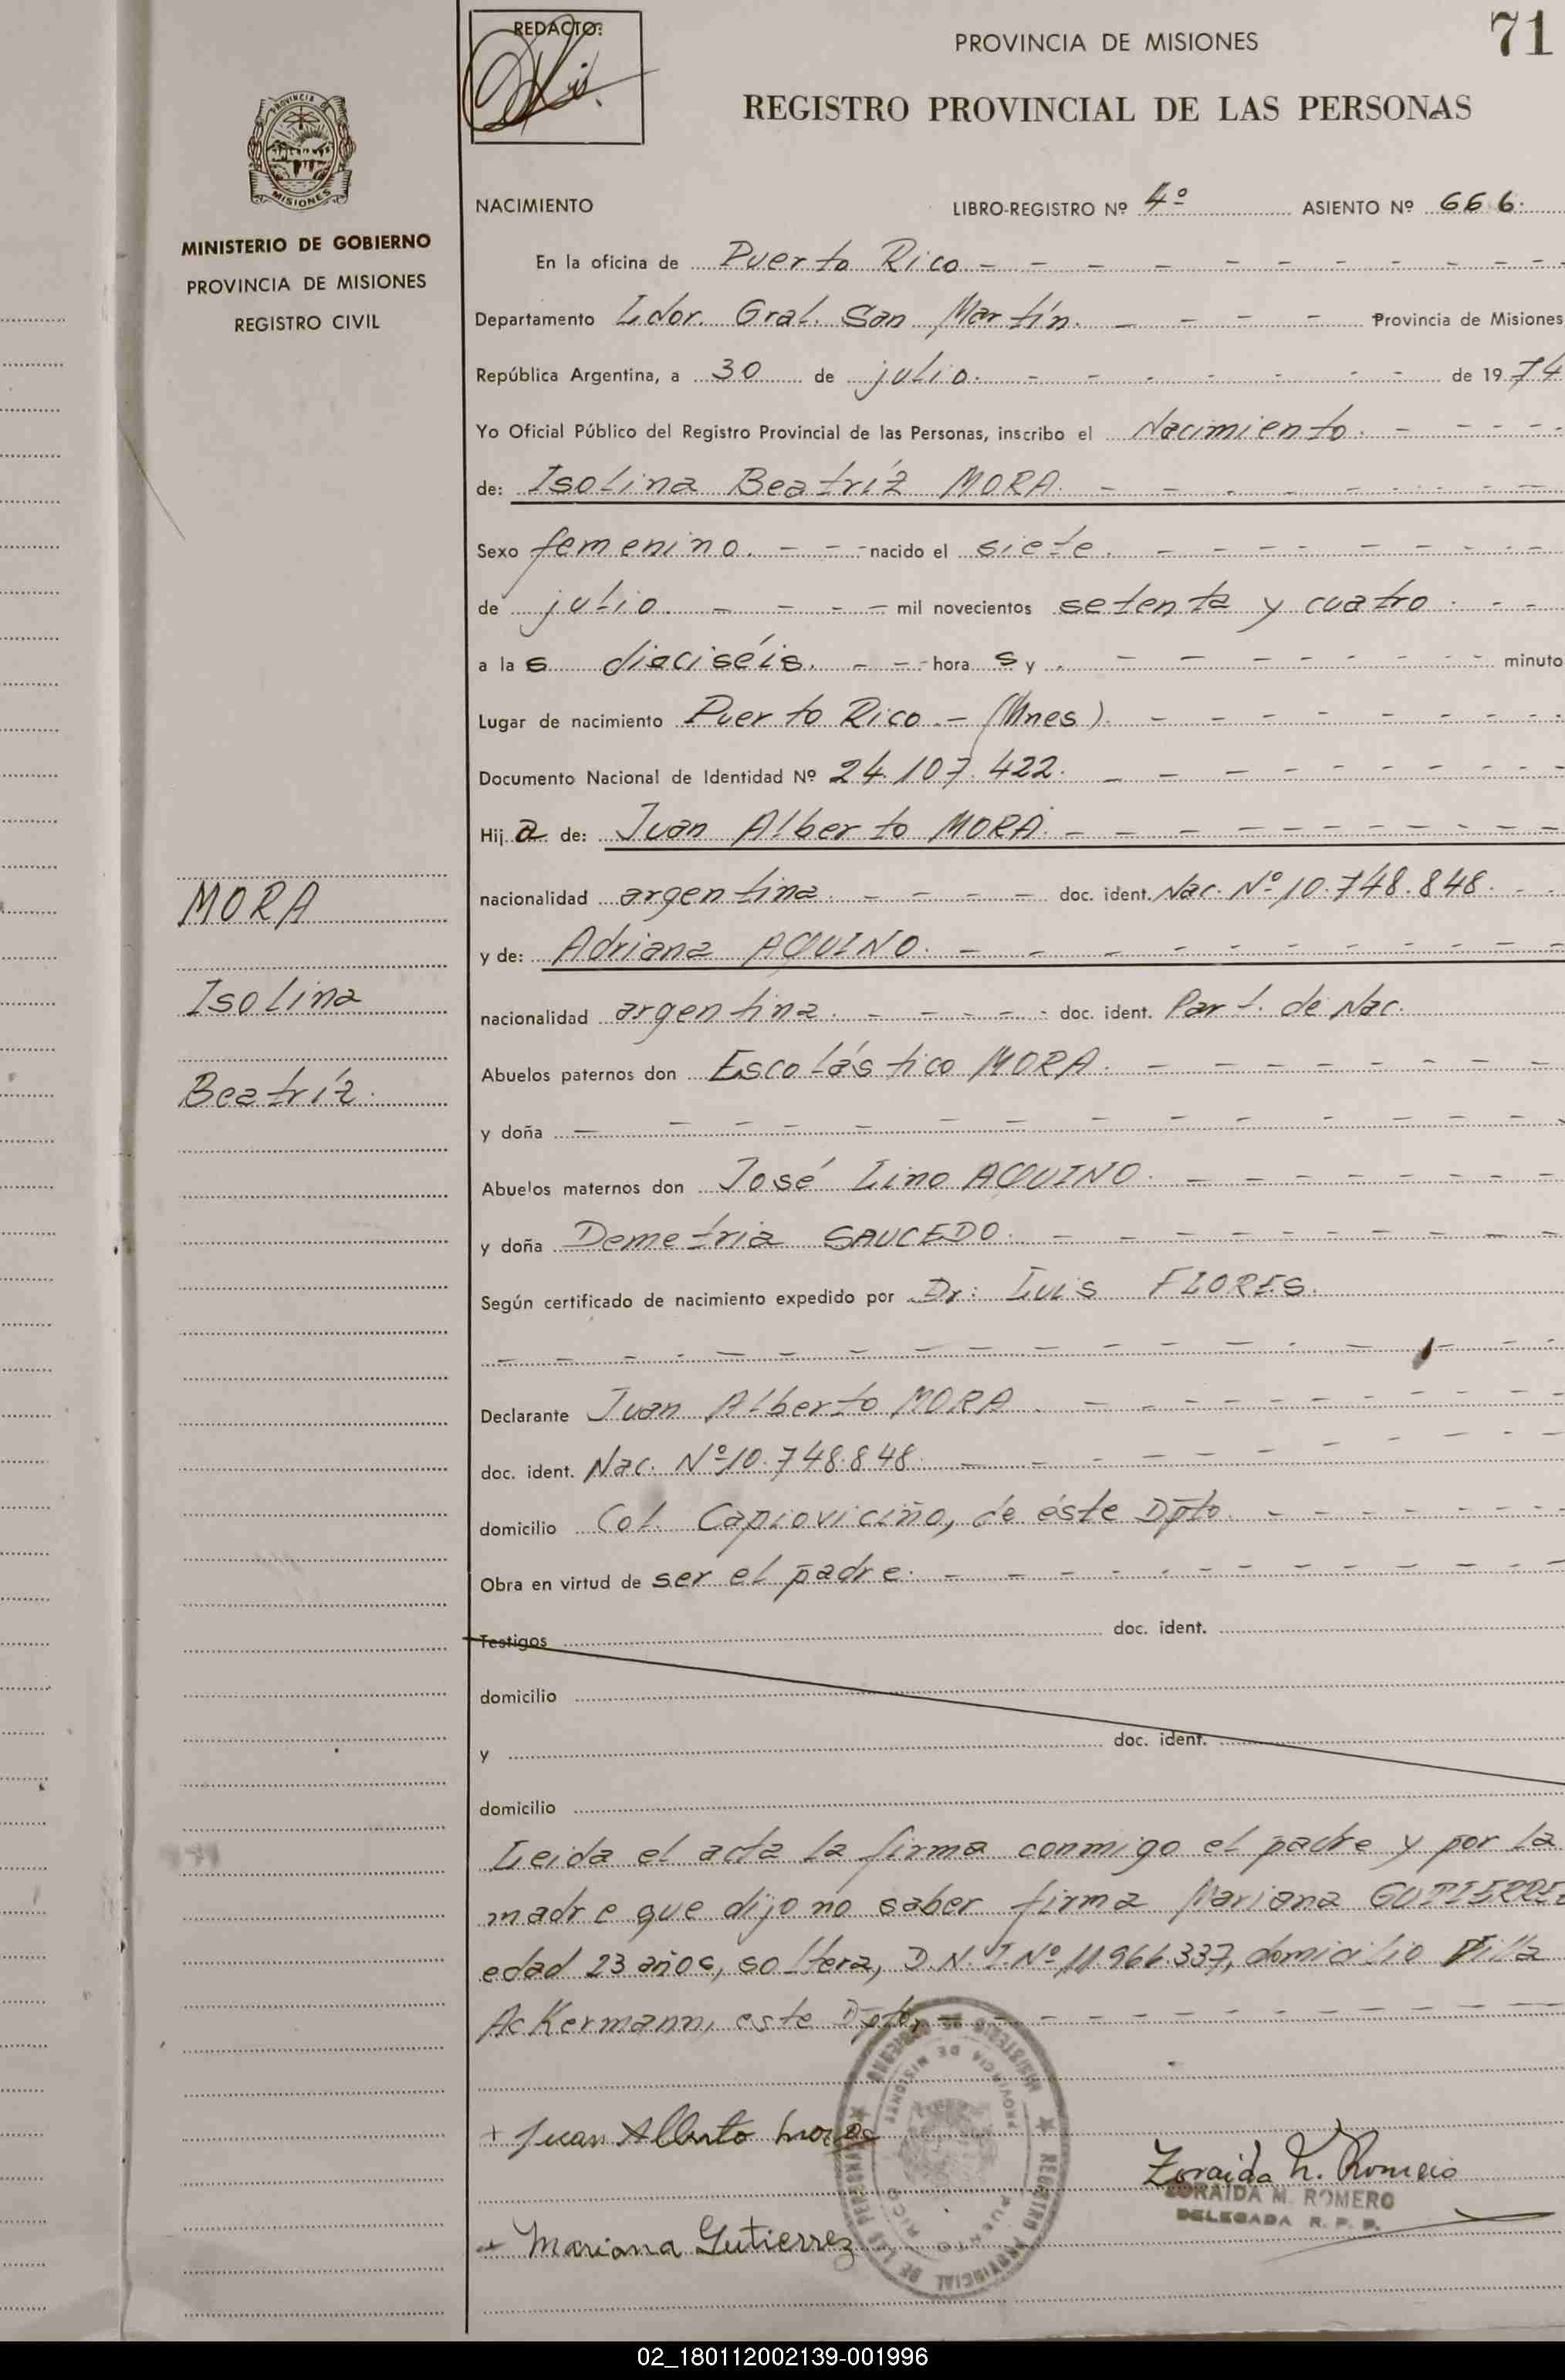 REDACTO:
PROVINCIA DE MISIONES
71
REGISTRO PROVINCIAL DE LAS PERSONAS
PROVINCIA DE
MISIONES
MINISTERIO DE GOBIERNO
PROVINCIA DE MISIONES
REGISTRO CIVIL
NACIMIENTO LIBRO-REGISTRO Nº 4º ASIENTO Nº 666.
En la oficina de Puerto Rico
Departamento Ldor. Gral. San Martín. Provincia de Misiones
República Argentina, a 30 de julio. de 1974
Yo Oficial Público del Registro Provincial de las Personas, inscribo el Nacimiento.
de: Isolina Beatríz MORA.
Sexo femenino. nacido el siete.
de julio. mil novecientos setenta y cuatro.
a las dieciséis. horas y. minuto
Lugar de nacimiento Puerto Rico.- (Mnes).
Documento Nacional de Identidad Nº 24.107.422.
Hija de: Juan Alberto MORA.
nacionalidad argentina. doc. ident. Nac. Nº 10.748.848.
y de: Adriana AQUINO.
nacionalidad argentina. doc. ident. Part. de Nac.
Abuelos paternos don Escolástico MORA.
y doña
Abuelos maternos don José Lino AQUINO.
y doña Demetria SAUCEDO.
Según certificado de nacimiento expedido por Dr: Luis FLORES.
Declarante Juan Alberto MORA.
doc. ident. Nac. Nº 10.748.848.
domicilio Col. Capioviciño, de éste Dpto.
Obra en virtud de ser el padre.
Testigos doc. ident.
domicilio
y doc. ident.
domicilio
Leida el acta la firma conmigo el padre y por la
madre que dijo no saber firma Mariana GUTIERREZ
edad 23 años, soltera, D.N.I.Nº 11.966.337, domicilio Villa
Ackermann, este Dpto,
MORA
Isolina
Beatríz.
+ Juan Alberto mora
+ Mariana Gutierrez
Zoraida M. Romero
ZORAIDA M. ROMERO
DELEGADA R. P. P.
MINISTERIO DE GOBIERNO
PROVINCIA DE MISIONES
REGISTRO PROVINCIAL DE LAS PERSONAS
PUERTO RICO
02_180112002139-001996